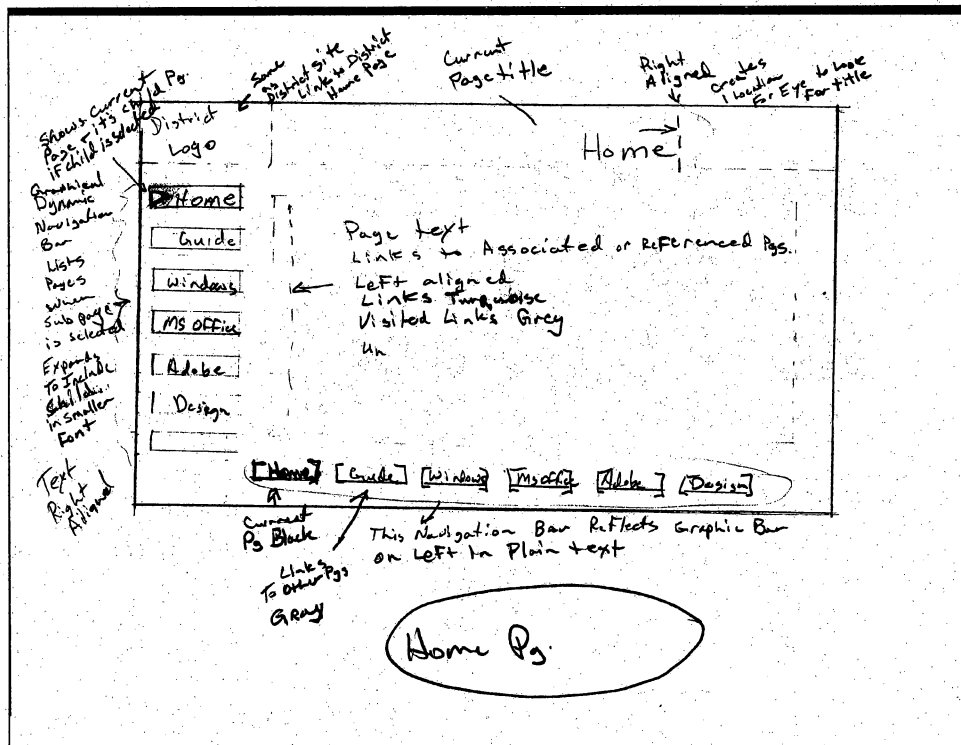 Current
Page title
Same
as
District site
Link to District
Home Page
Right
Aligned
creates
1 location
For Eye to Look
For title
Shows Current
Page + its child Pg.
if child is selected
District
Logo
Home
Graphical
Dynamic
Navigation
Bar
Lists
Pages
when
Sub page
is selected
Expands
To Include
in smaller
Font
Text
Right
Aligned
Home
Guide
Windows
MS Office
Adobe
Design
Page text
Links to Associated or Referenced Pgs.
Left aligned
Links Turquoise
Visited Links Grey
un
[Home] [Guide] [Windows] [MS Office] [Adobe] [Design]
Current
Pg Black
Links
To Other Pgs
Gray
This Navigation Bar Reflects Graphic Bar
on Left in Plain text
Home Pg.